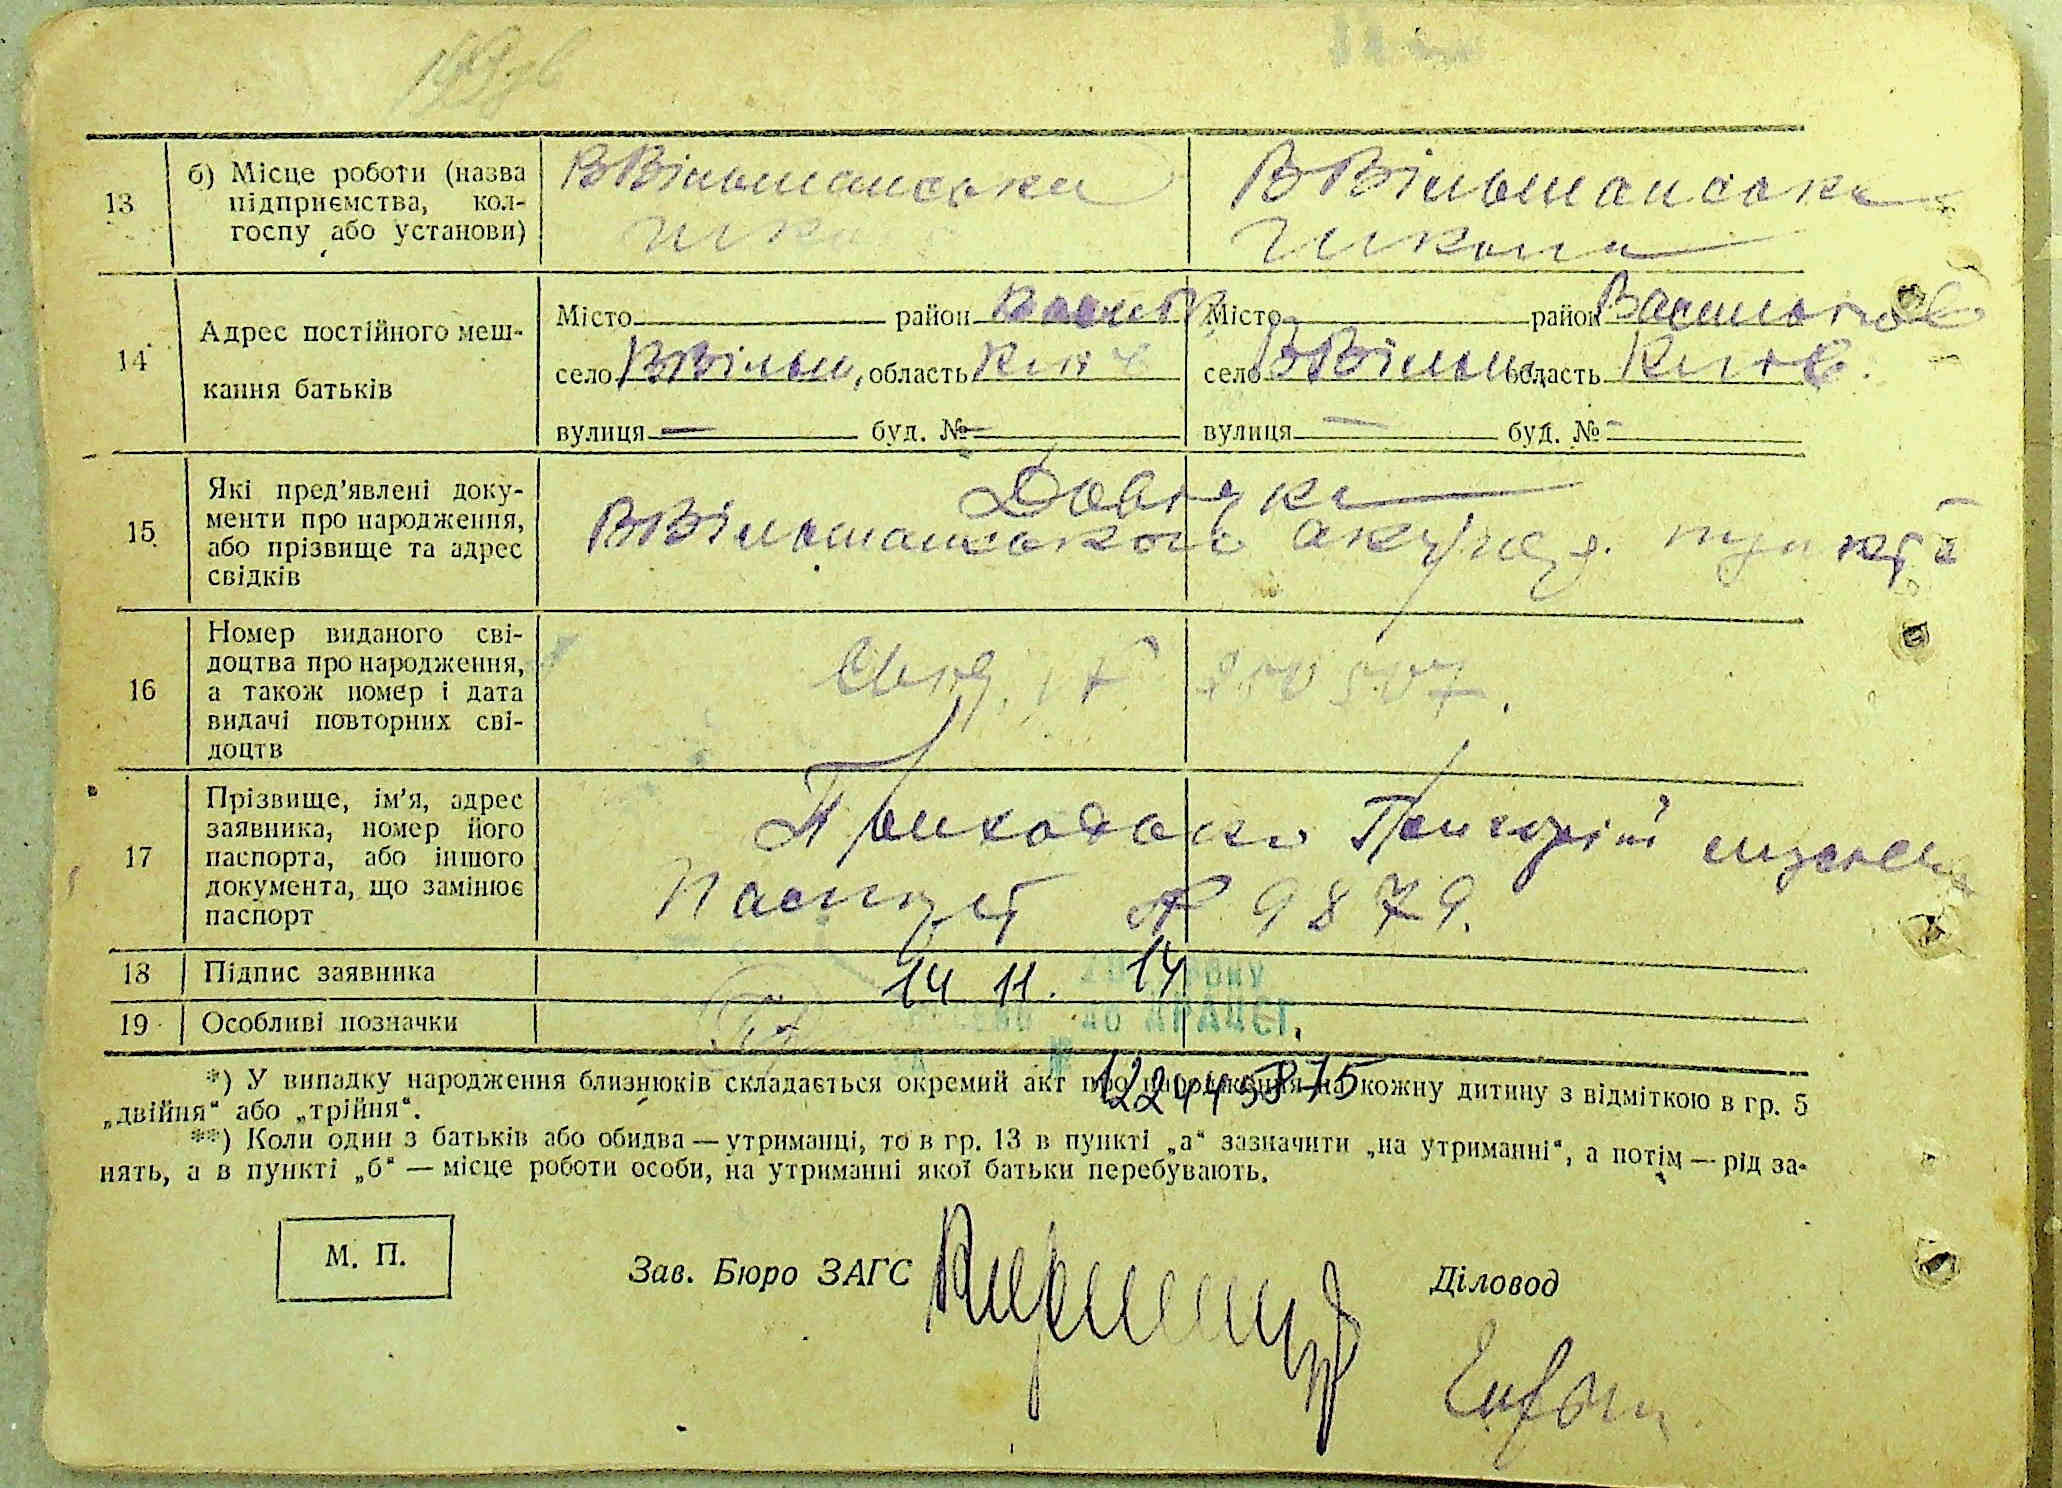 13
б) Місце роботи (назва
підприємства, кол-
госпу або установи)
ВВільшанська
школа
ВВільшанська
школа
14
Адрес постійного меш-
кання батьків
Місто район
село ВВільш, область Київ
вулиця — буд. № —
Місто район Васильков
село ВВільш область Київ
вулиця — буд. № -
15
Які пред'явлені доку-
менти про народження,
або прізвище та адрес
свідків
Довідка
ВВільшанського акушер. пункта
16
Номер виданого сві-
доцтва про народження,
а також номер і дата
видачі повторних сві-
доцтв
Свид. №
17
Прізвище, ім'я, адрес
заявника, номер його
паспорта, або іншого
документа, що замінює
паспорт
Приходько Григорій
Паспорт № 9879.
18
Підпис заявника
14 11. 14
року
19
Особливі позначки
до ДРАЦСГ
№ 122445875
*) У випадку народження близнюків складається окремий акт про народження на кожну дитину з відміткою в гр. 5
„двійня“ або „трійня“.
**) Коли один з батьків або обидва — утриманці, то в гр. 13 в пункті „а“ зазначити „на утриманні“, а потім — рід за-
нять, а в пункті „б“ — місце роботи особи, на утриманні якої батьки перебувають.
М. П.
Зав. Бюро ЗАГС
Діловод